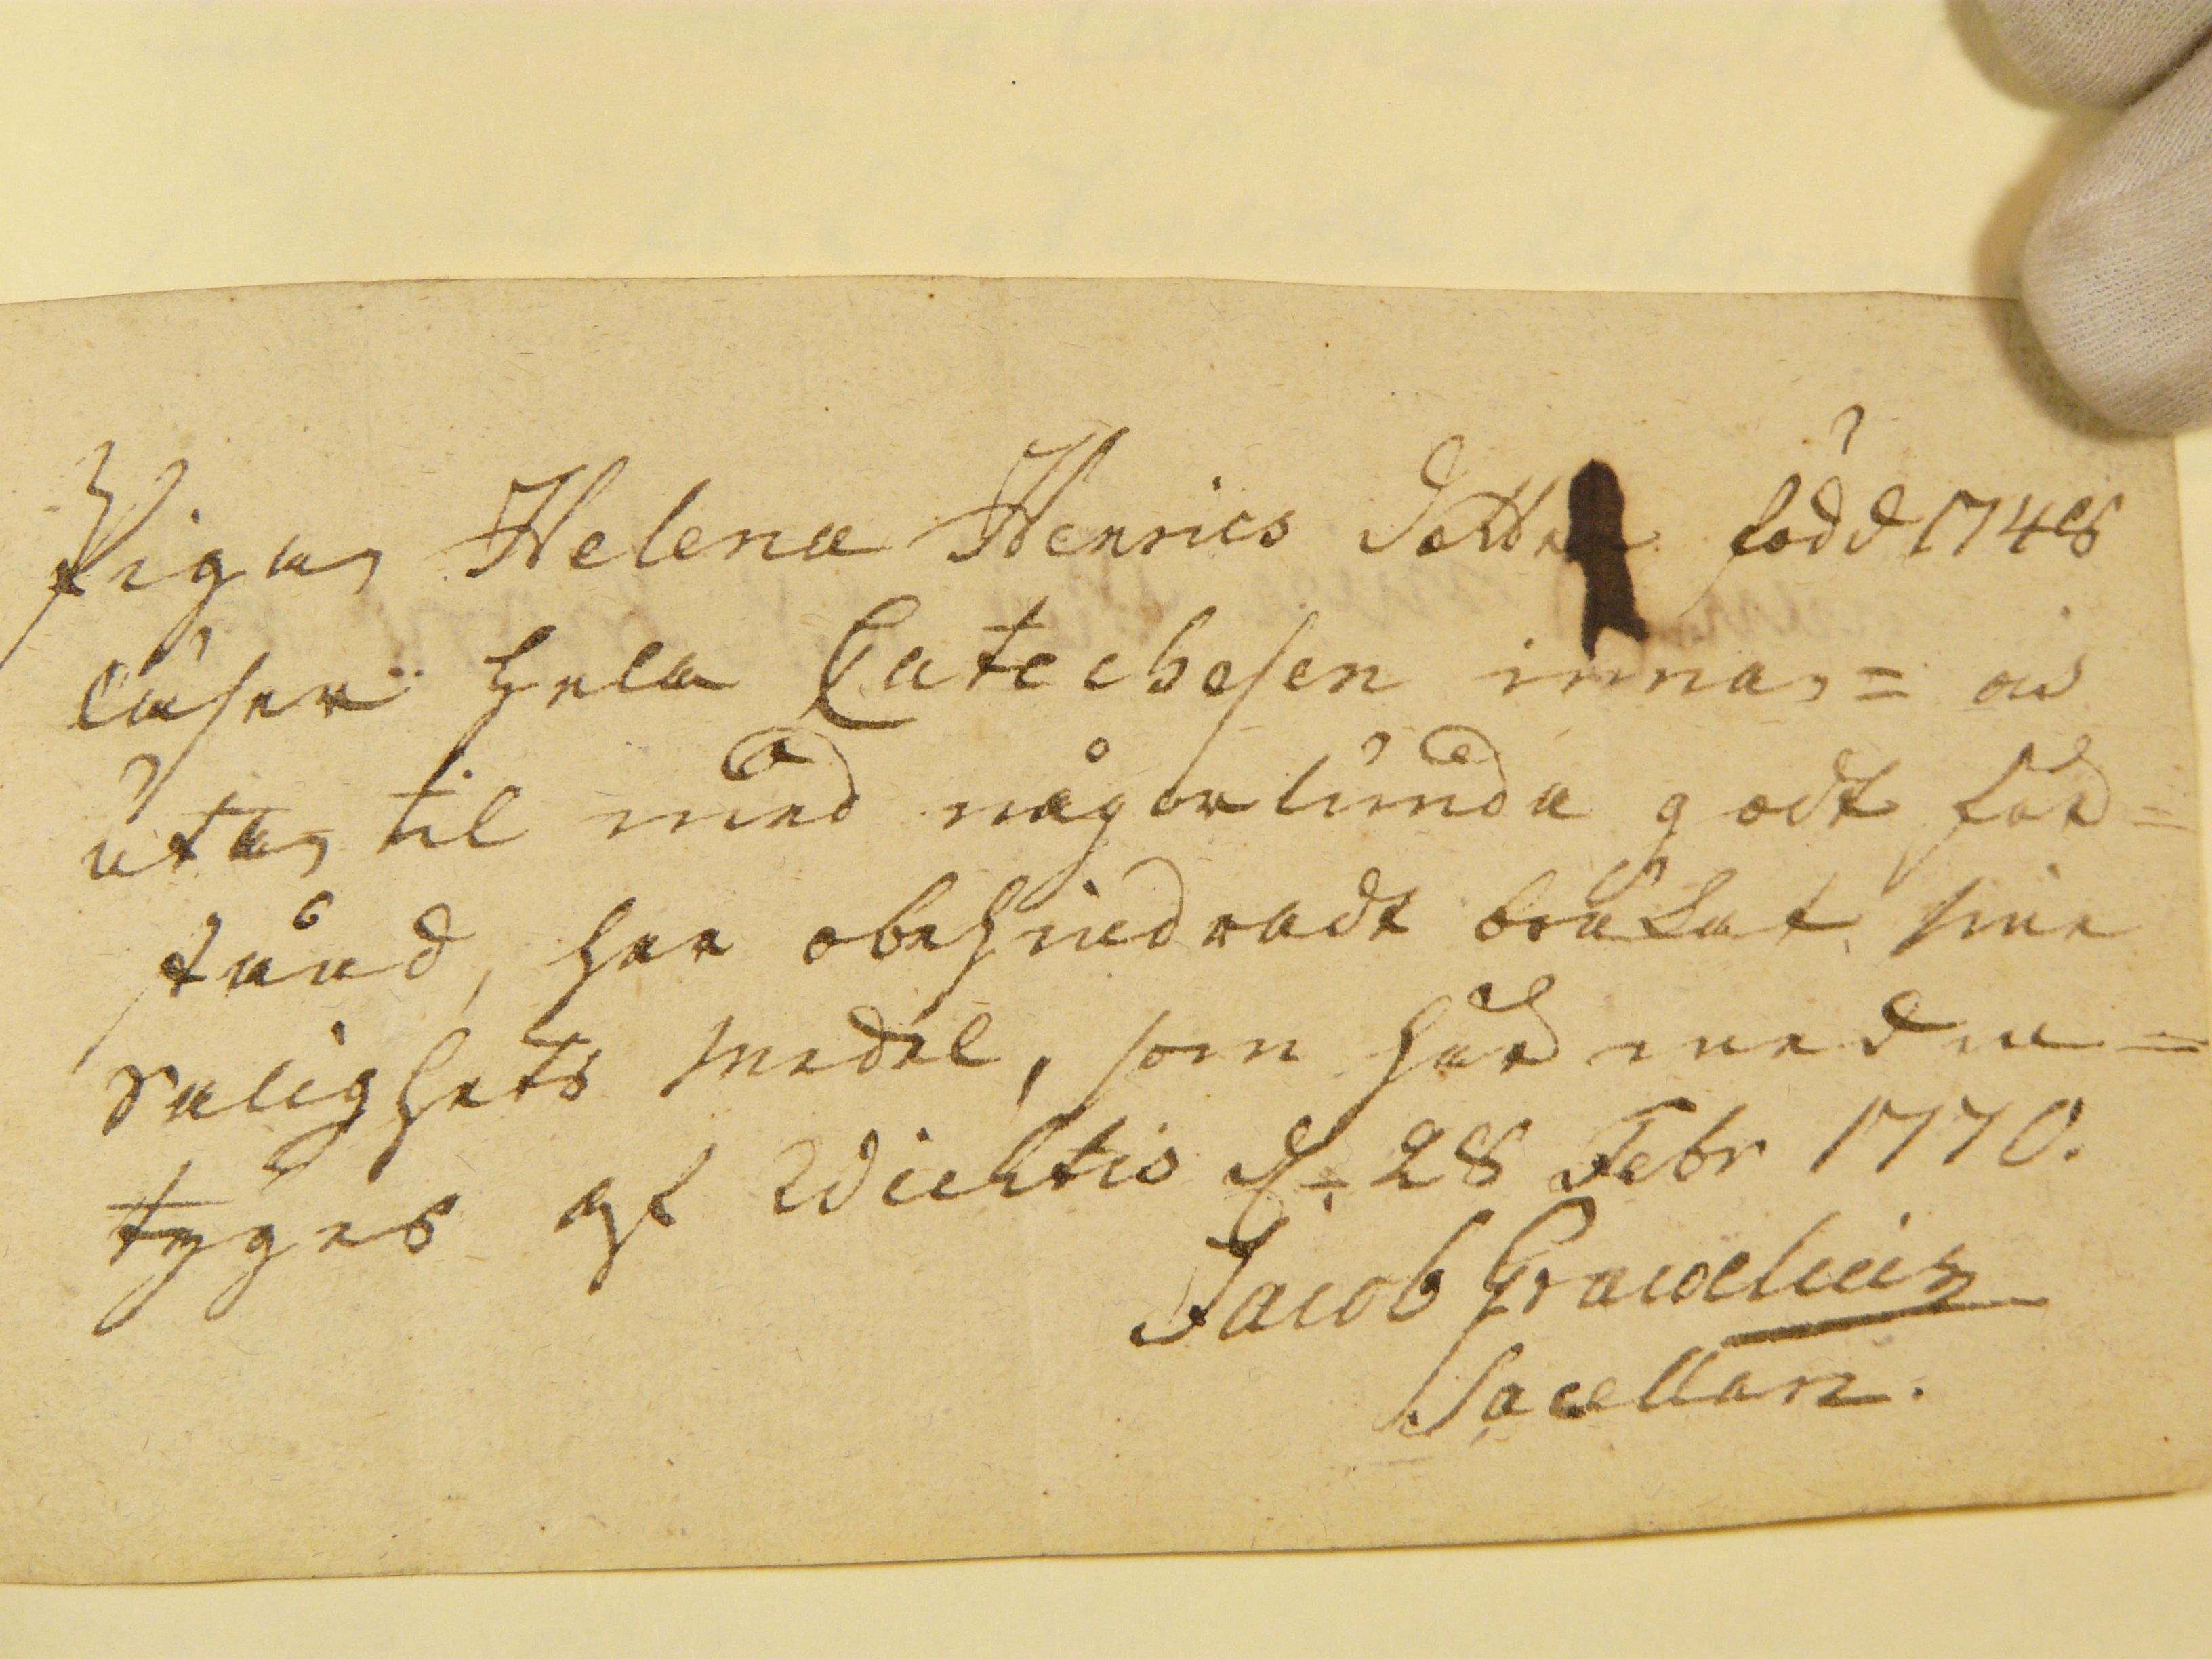 Pigan Helena Henrics Dotter född 1748
läser hela Catechesen innan= ok
utan til med någorlunda godt för=
stånd, har obehindradt brukat sine
Salighets medel, som här medm=
tyges af Wichtis d. 28 Febr 1770.
Jacob Grawelius
Sacellan.